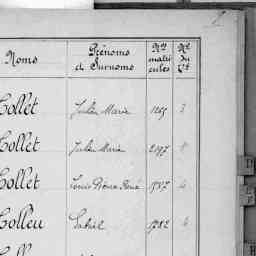 Noms Prénoms et Surnoms Nos matri cules No du Ct
Collet Julien Marie 1265 3
Collet Julien Marie 2197
Collet Louis Pierre René 1757 4
Colleu 1782 4